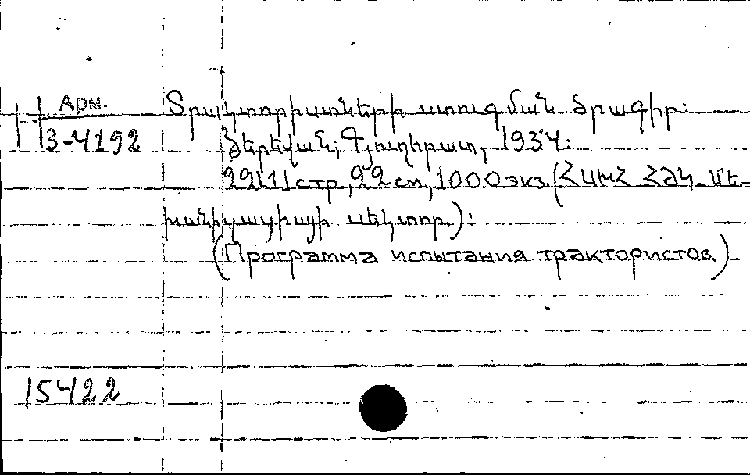 Арм.
3-4192
Տրակտորիստների ստուգման ծրագիր:
Յերեվան, Գյուղհրատ, 1934:
22[1] стр, 22 см, 1000 экз (ՀՍԽՀ ՀԺԿ Մե
խանիզացիայի սեկտոր.):
(Программа испытания трактористов)
15422